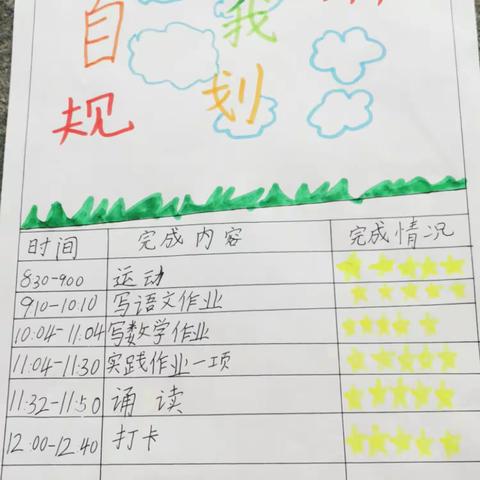 自我
规划
时间 完成内容 完成情况
8:30-9:00 运动
9:10-10:10 写语文作业
10:04-11:04 写数学作业
11:04-11:30 实践作业一项
11:32-11:50 诵读
12:00-12:40 打卡